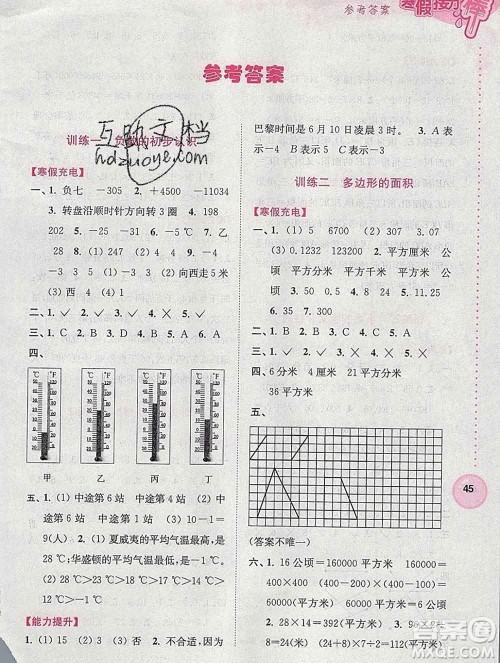 参考答案
寒假接力棒
参考答案
训练一 负数的初步认识
互助文档
hdzuoye.com
【寒假充电】
一、1. 负七 －305 2. ＋4500 －11034
3. 转盘沿顺时针方向转3圈 4. 198
202 5. －25 －31 6. －5 7. 乙
28 8. (1) 2 4 －2 －4 (2) －1
－3 3 9. (1) －3 (2) 向西走5米
(3) 西 4 (4) 1
二、1. ✓ 2. ✓ 3. ✓ 4. ✓ 5. ✕
三、1. C 2. B 3. A 4. A 5. B
四、
℃ ℉ ℃ ℉ ℃ ℉ ℃ ℉
甲 乙 丙 丁
五、1. (1) 中途第6站 (2) 中途第1站
中途第6站 中途第4站 (3) 10－1＝
9(人) 2. (1) 夏威夷的平均气温最高，
华盛顿的平均气温最低。 (2) 28℃
(2) 28℃＞22℃＞18℃＞－2℃＞－10℃
【能力提升】
1. (1) 15 (2) 89 2. 不合适，因为
巴黎时间是6月10日凌晨3时。 3. A表
示－4 B表示2 C表示－3
训练二 多边形的面积
【寒假充电】
一、1. (1) 5 6700 (2) 2 200
(3) 0.1232 123200 2. 平方厘米 公
顷 平方分米 平方千米 平方米 公
顷 3. 15 30 4. 0.5 8 24 5. 11.25
6. 35 7. 300
二、1. ✕ 2. ✓ 3. ✕ 4. ✓ 5. ✕
三、1. A 2. C 3. C 4. B 5. A
四、6平方分米 4平方厘米 21平方厘米
36平方米
五、
(答案不唯一)
六、1. 16公顷＝160000平方米 160000＝
400×400 (200＋400)×(200＋400)＝
360000(平方米) 2. (4＋3)×2＝14(米)
4×2＝8(平方米) 3. 96×2÷
8＝24(米) (24＋8)×7÷2＝112(平方米)
45